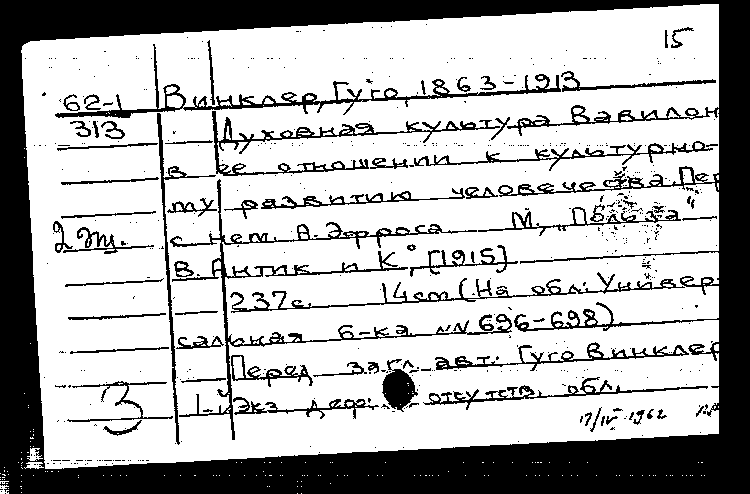 15
62-1 Винклер, Гуго, 1863-1913
313 Духовная культура Вавилон
в ее отношении к культурно-
му развитию человечества. Пер
2 эк. с нем. А. Эфроса. М., „Польза"
В. Антик и К°, [1915]
237с. 14cm (На обл: Универ-
сальная б-ка NN 696-698)
Перед загл. авт.: Гуго Винклер
3 1-й экз деф: отсутств. обл.
17/IV 1962